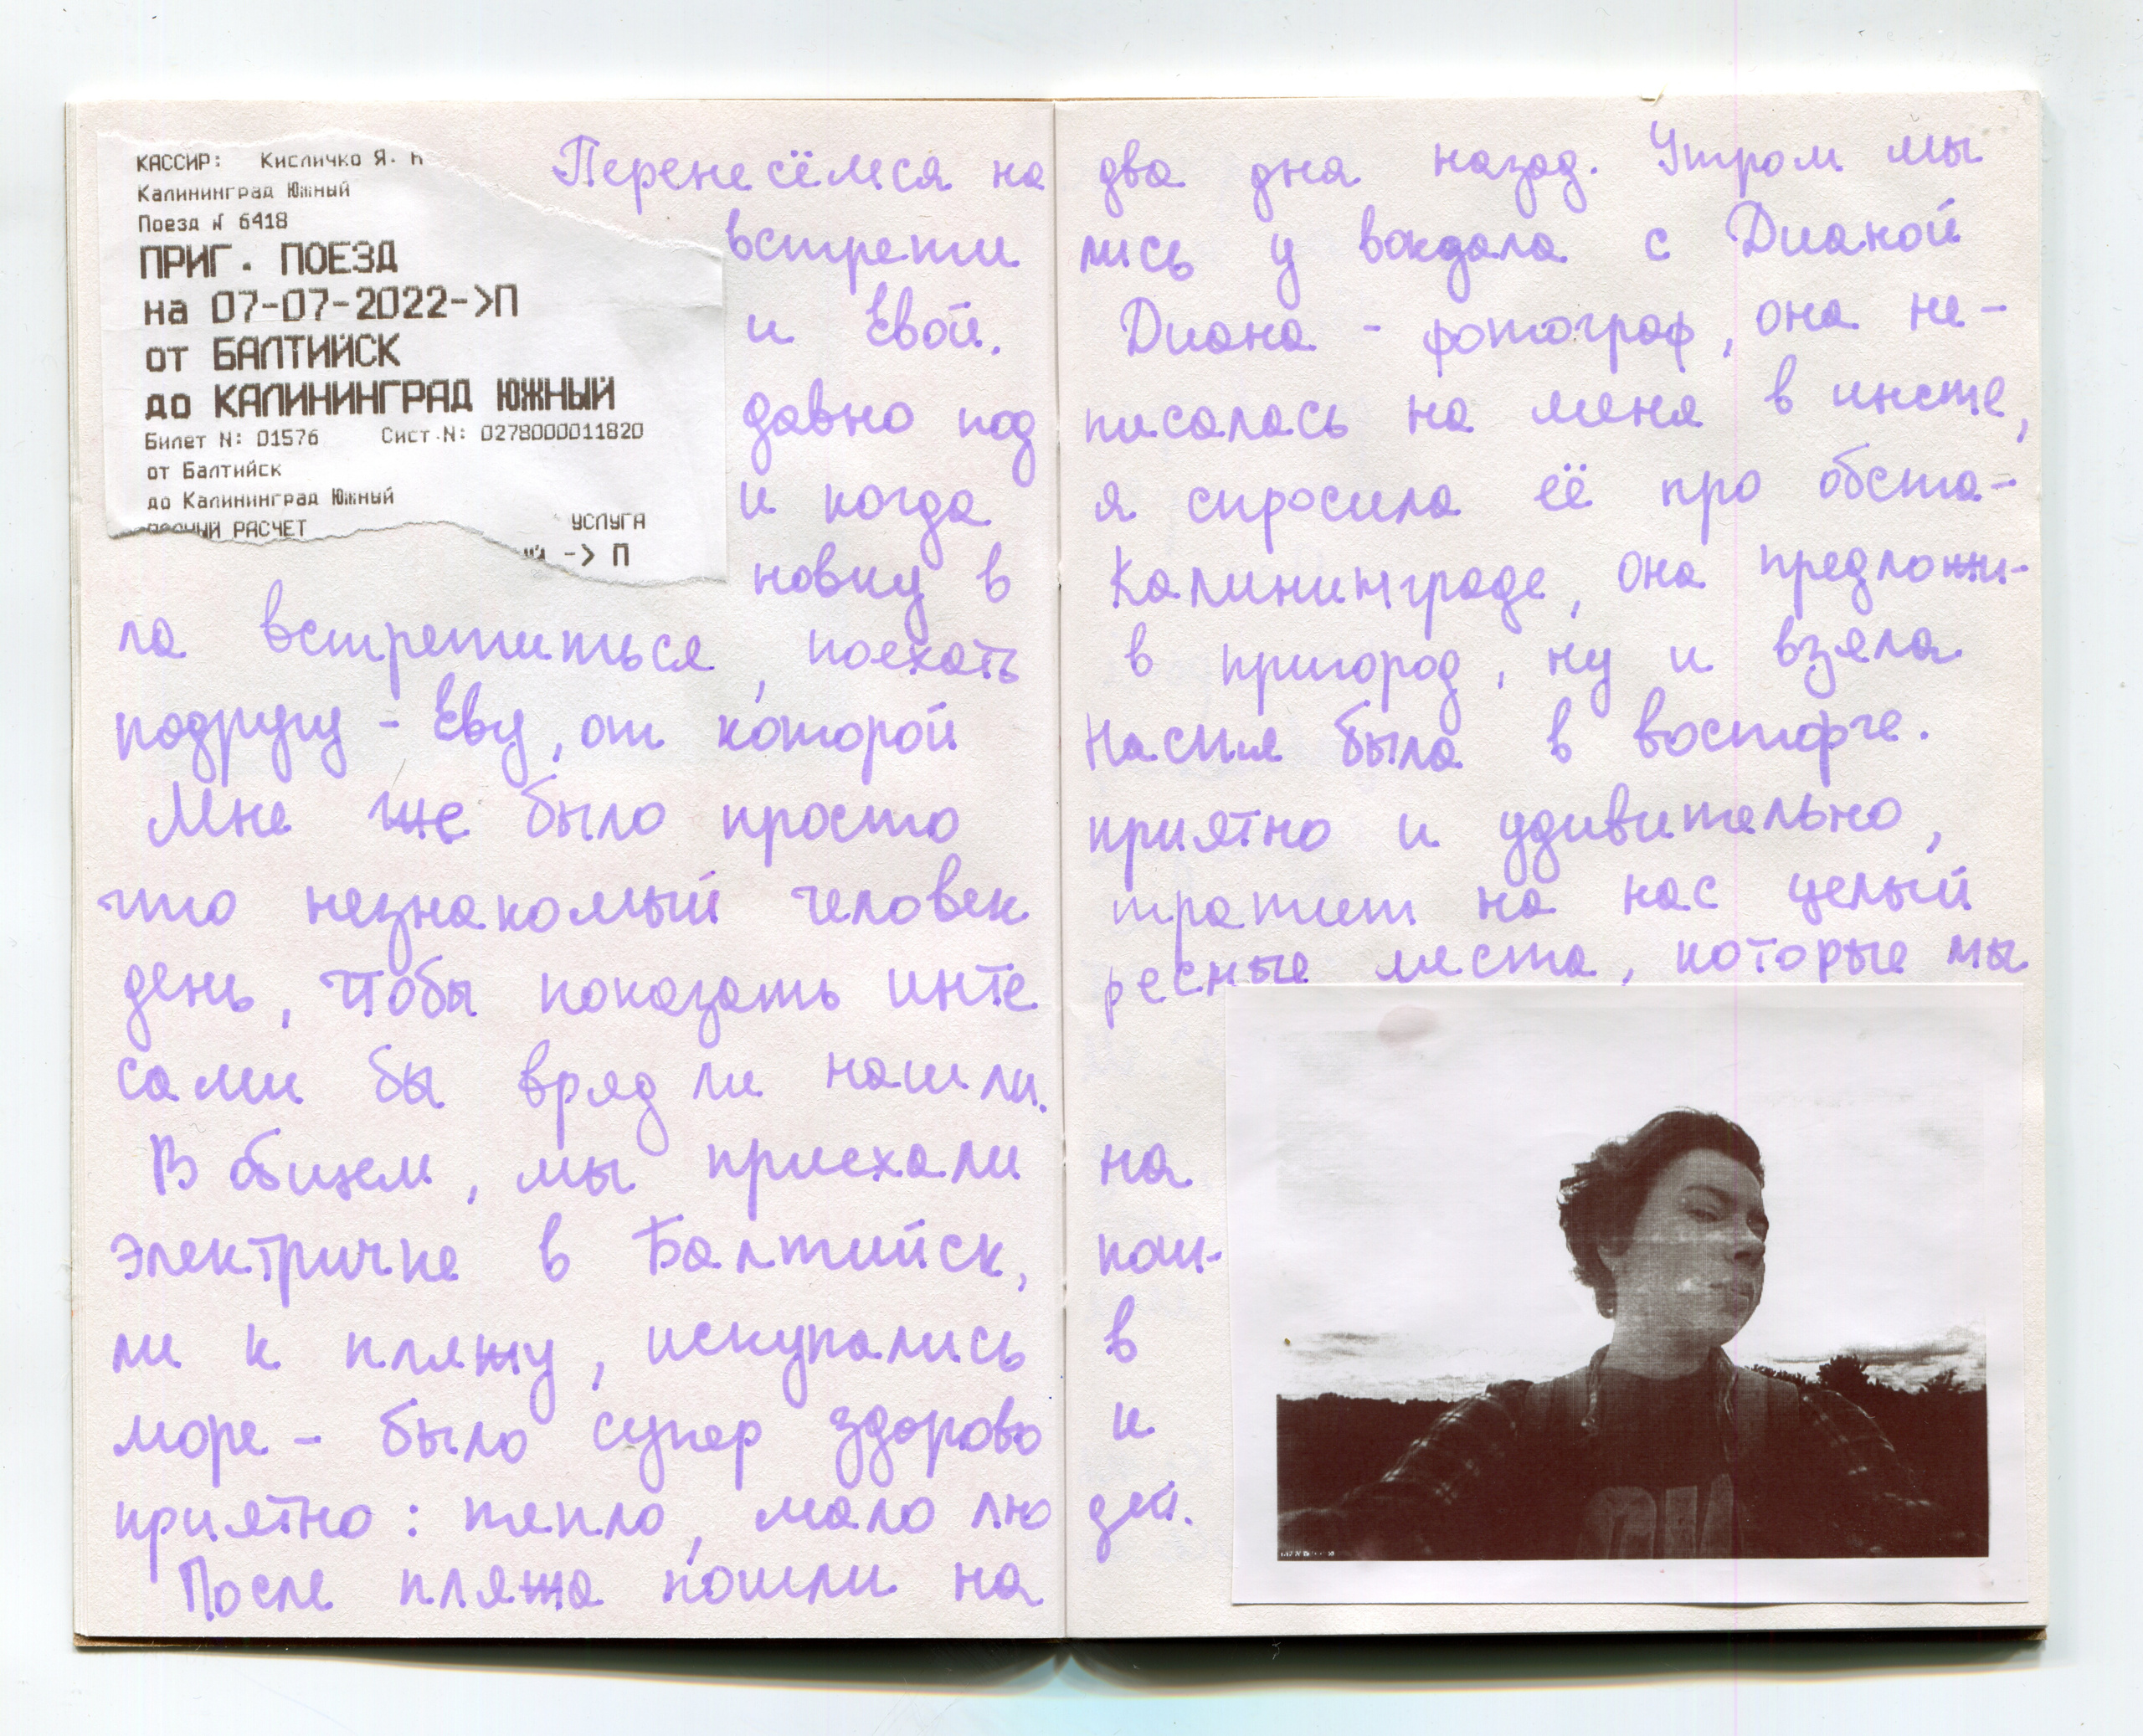 КАССИР: Кисличко Я.
Калининград Южный
Поезд N 6418
ПРИГ. ПОЕЗД
на 07-07-2022->П
от БАЛТИЙСК
до КАЛИНИНГРАД ЮЖНЫЙ
Билет N: 01576 Сист.N: 0278000011820
от Балтийск
до Калининград Южный
РАСЧЕТ УСЛУГА
-> П
Перенесёмся на два дня назад. Утром мы
встретились у вокзала с Дианой
и Евой. Диана - фотограф, она не-
давно подписалась на меня в инсте,
и когда я спросила её про обста-
новку в Калининграде, она предложи-
ла встретиться, поехать в пригород, ну и взяла
подругу - Еву, от которой Настя была в восторге.
Мне же было просто приятно и удивительно,
что незнакомый человек тратит на нас целый
день, чтобы показать интересные места, которые мы
сами бы вряд ли нашли.
В общем, мы приехали на
электричке в Балтийск, пош-
ли к пляжу, искупались в
море - было супер здорово и
приятно: тепло, мало людей.
После пляжа пошли на